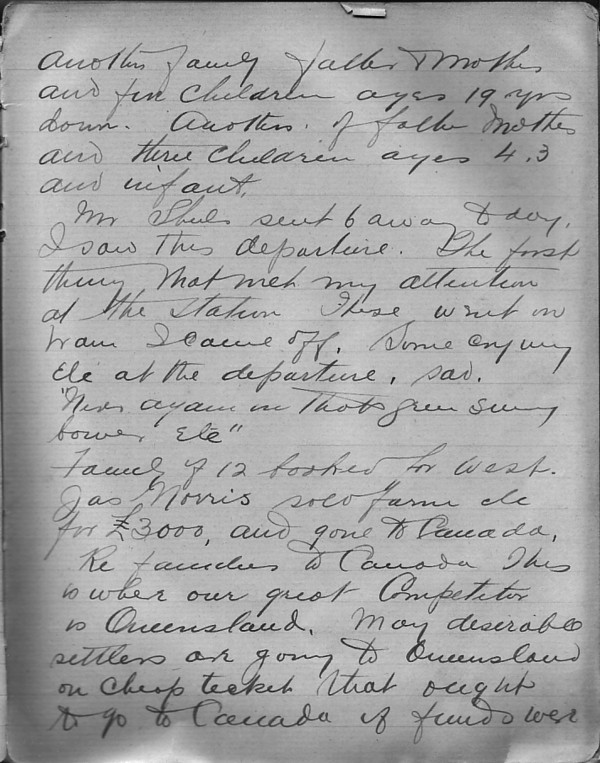 Another family father & Mother
and five Children ages 19 yrs
down. Another of father Mother
and three Children ages 4.3
and infant.
Mr sent 6 away today.
I saw this departure. The first
thing that met my attention
at the Station These went on
train I came off. Some crying
etc at the departure, sad.
"Never again in green sunny
bower Etc"
Family of 12 booked for West.
Jas Norris sold farm etc
for £3000, and gone to Canada.
Re families to Canada This
is where our great Competitor
is Queensland. Many desirable
settlers are going to Queensland
on cheap ticket that ought
to go to Canada if funds were